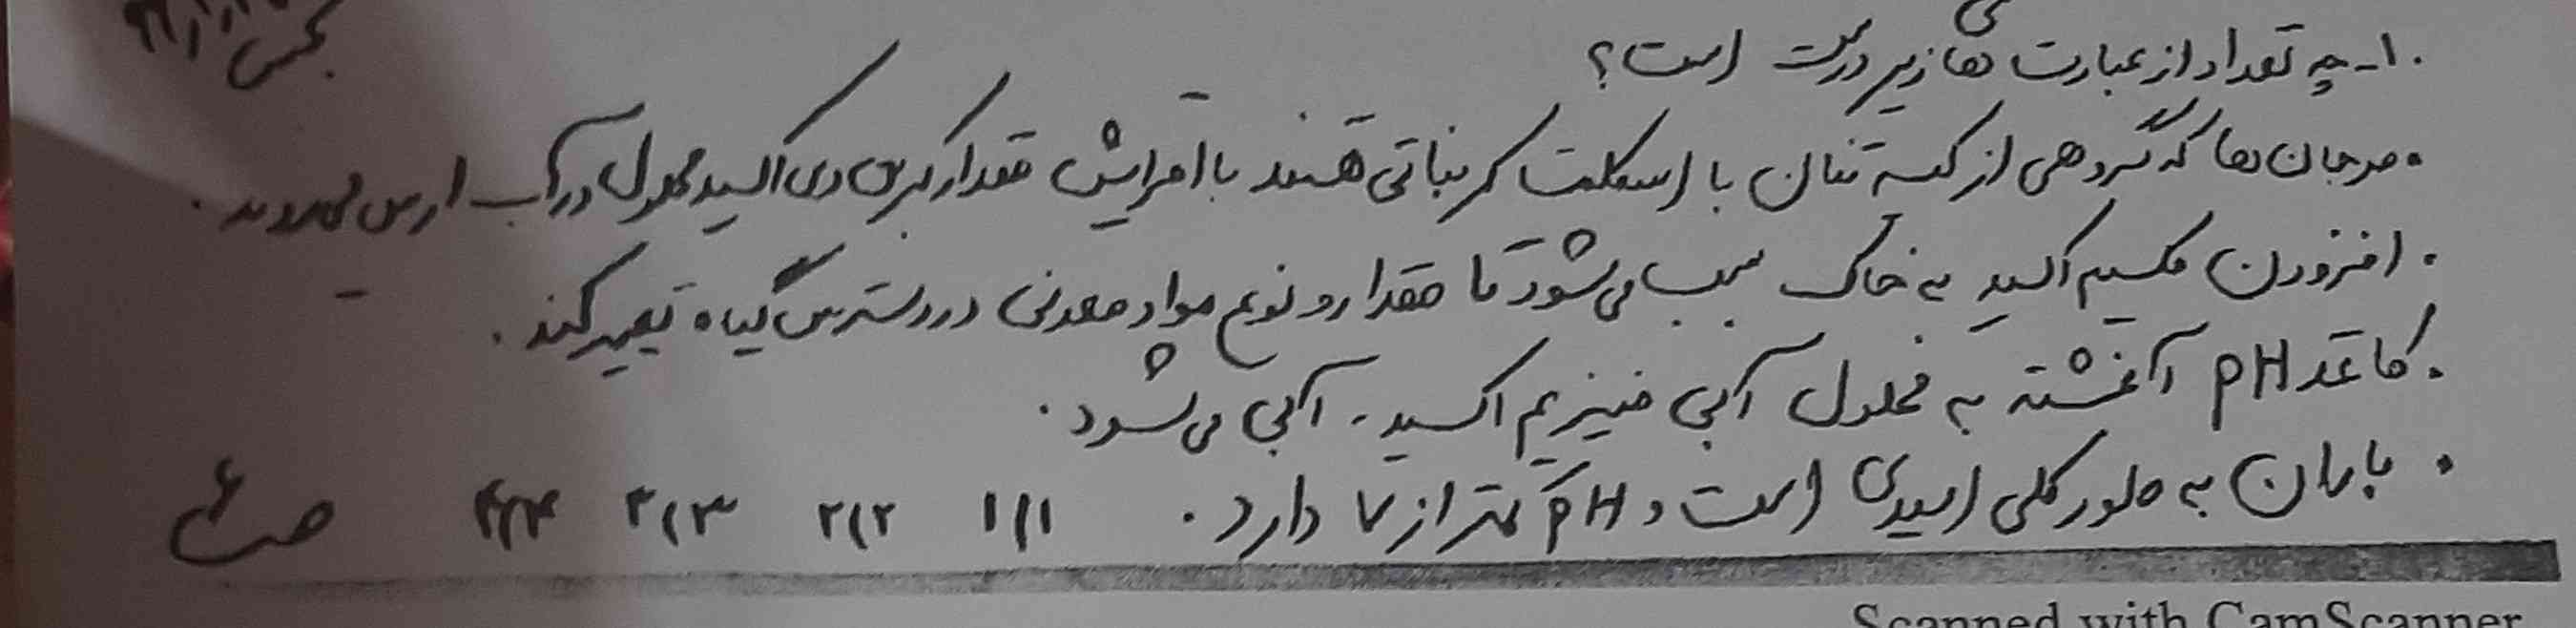 ۱۰- چه تعداد از عبارت های زیر درست است؟
• مرجان ها که گروهی از کیسه تنان با اسکلت کربناتی هستند با افزایش مقدار کربن دی اکسید محلول در آب از بین می روند.
• افزودن کلسیم اکسید به خاک سبب می شود تا مقدار و نوع مواد معدنی در دسترس گیاه تغییر کند.
• کاغذ pH آغشته به محلول آبی منیزیم اکسید، آبی می شود.
• باران به طور کلی اسیدی است و pH کمتر از ۷ دارد. ۱) ۱ ۲) ۲ ۳) ۳ ۴) ۴
Scanned with CamScanner